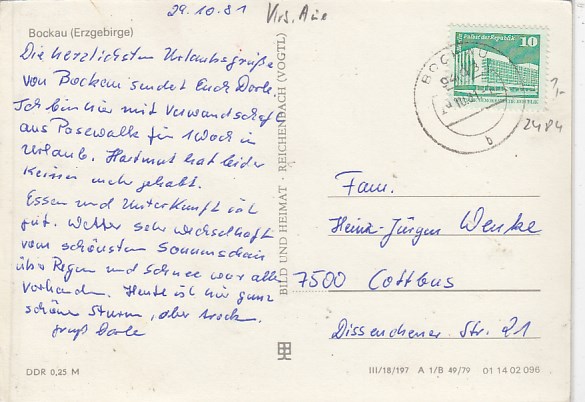 29.10.81
Krs. Aue
Bockau (Erzgebirge)
Die herzlichsten Urlaubsgrüße
von Bockau sendet Euch Dorle.
Ich bin hier mit Verwandschaft
aus Pasewalk für 1 Woch in
Urlaub. Hartmut hat leider
keinen mehr gehabt.
Essen und Unterkunft ist
gut. Wetter sehr wechselhaft
vom schönsten Sonnenschein
über Regen und Schnee war alles
vorhanden. Heute ist hier ganz
schöner Sturm, aber trocken.
Gruß Dorle
DDR 0,25 M
BILD UND HEIMAT · REICHENBACH (VOGTL)
Palast der Republik
10
BOCKAU
b
1,-
2484
Fam.
Heinz-Jürgen Wenke
7500 Cottbus
Dissenchener Str. 21
III/18/197 A 1/B 49/79 01 14 02 096